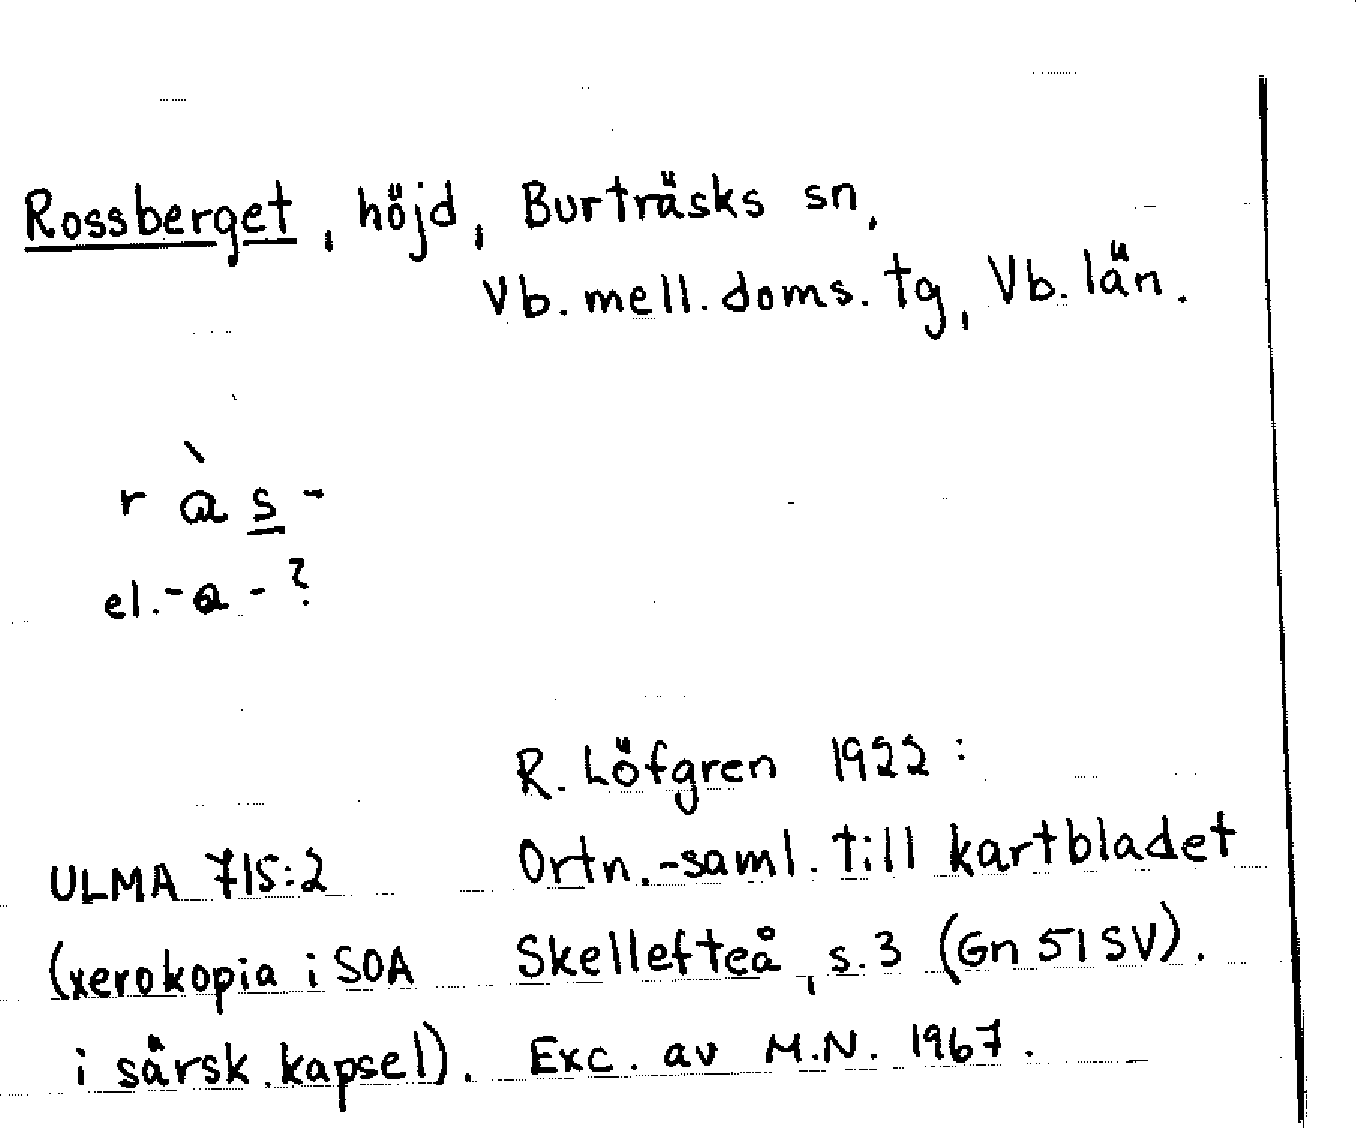 Rossberget, höjd, Burträsks sn,
Vb. mell. doms. tg, Vb. län.
r à s -
el. -a- ?
R. Löfgren 1922:
Ortn.-saml. till kartbladet
Skellefteå, s. 3 (Gn 51 SV).
Exc. av M.N. 1967.
ULMA 715:2
(xerokopia i SOA
i särsk. kapsel).